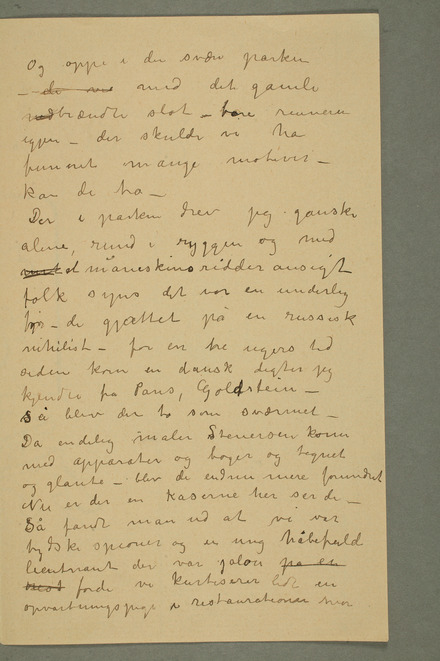 Og oppe i den svære parken
– de var med det gamle
nedbrændte slot – bare ruinern
igjen – der skulde vi ha
funnet mange motiver –
kan de tro –
Der i parken drev jeg ganske
alene, rund i ryggen og med
et måneskinsridderansigt
folk syns det var en underlig
– de gjættet på en russisk
nihilist – for en tre ugers tid
siden kom en dansk digter jeg
kjendte fra Paris, Goldstein –
Så blev der to som sværmet –
Da endelig maler Stenersen kom
med apparater og bøger og tegnet
og glante – blev de endnu mere forundret
Nu er der en Kaserne her ser de –
Så fandt man ud at vi var
tydske spioner og en ung håbefuld
lieutnant der var jalou på en
fordi vi kurtiserer lidt en
opvartningspige i restaurationen hvor